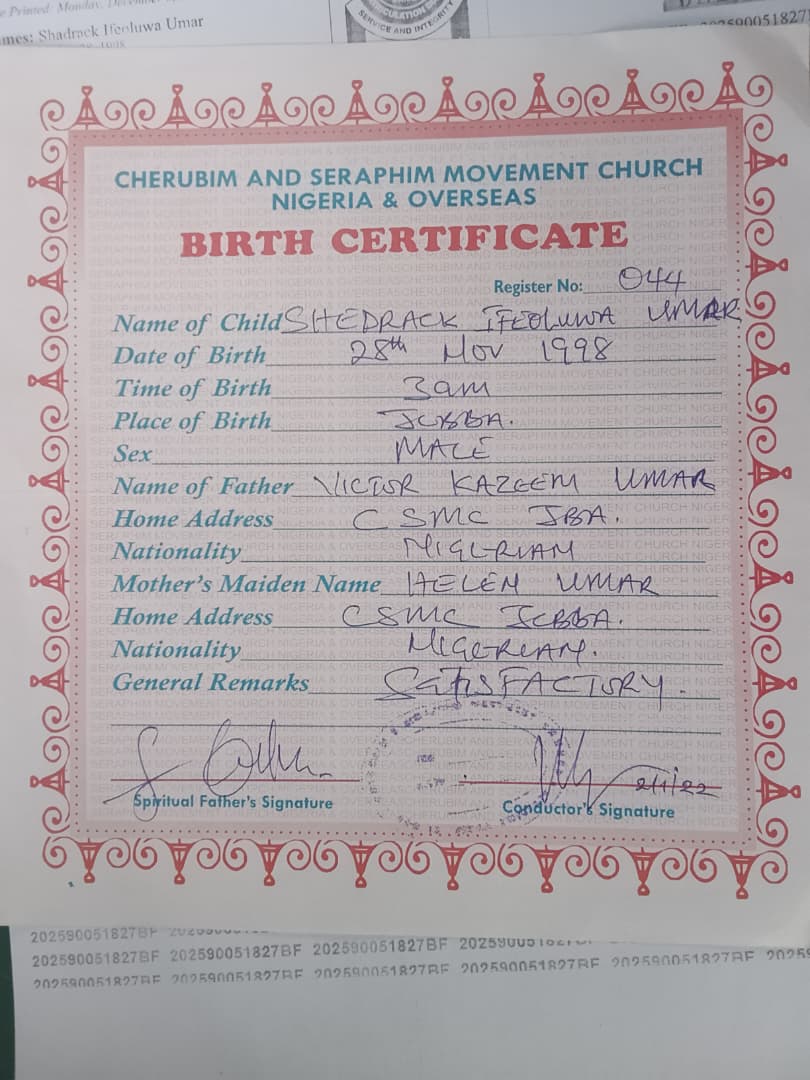 e Printed: Monday, December
mes: Shadrack Ifeoluwa Umar
SERVICE AND INTEGRITY
CHERUBIM AND SERAPHIM MOVEMENT CHURCH
NIGERIA & OVERSEAS
BIRTH CERTIFICATE
Register No: 044
Name of Child SHEDRACK IFEOLUWA UMAR
Date of Birth 28th Nov 1998
Time of Birth 3am
Place of Birth JEBBA.
Sex MALE
Name of Father VICTOR KAZEEM UMAR
Home Address CSMC JBA.
Nationality NIGERIAN
Mother's Maiden Name HELEN UMAR
Home Address CSMC JEBBA.
Nationality NIGERIAN.
General Remarks SATISFACTORY.
2/1/22
Spiritual Father's Signature Conductor's Signature
202590051827BF
202590051827BF 202590051827BF 202590051827BF
202590051827BF 202590051827BF 202590051827BF 202590051827BF 202590051827BF